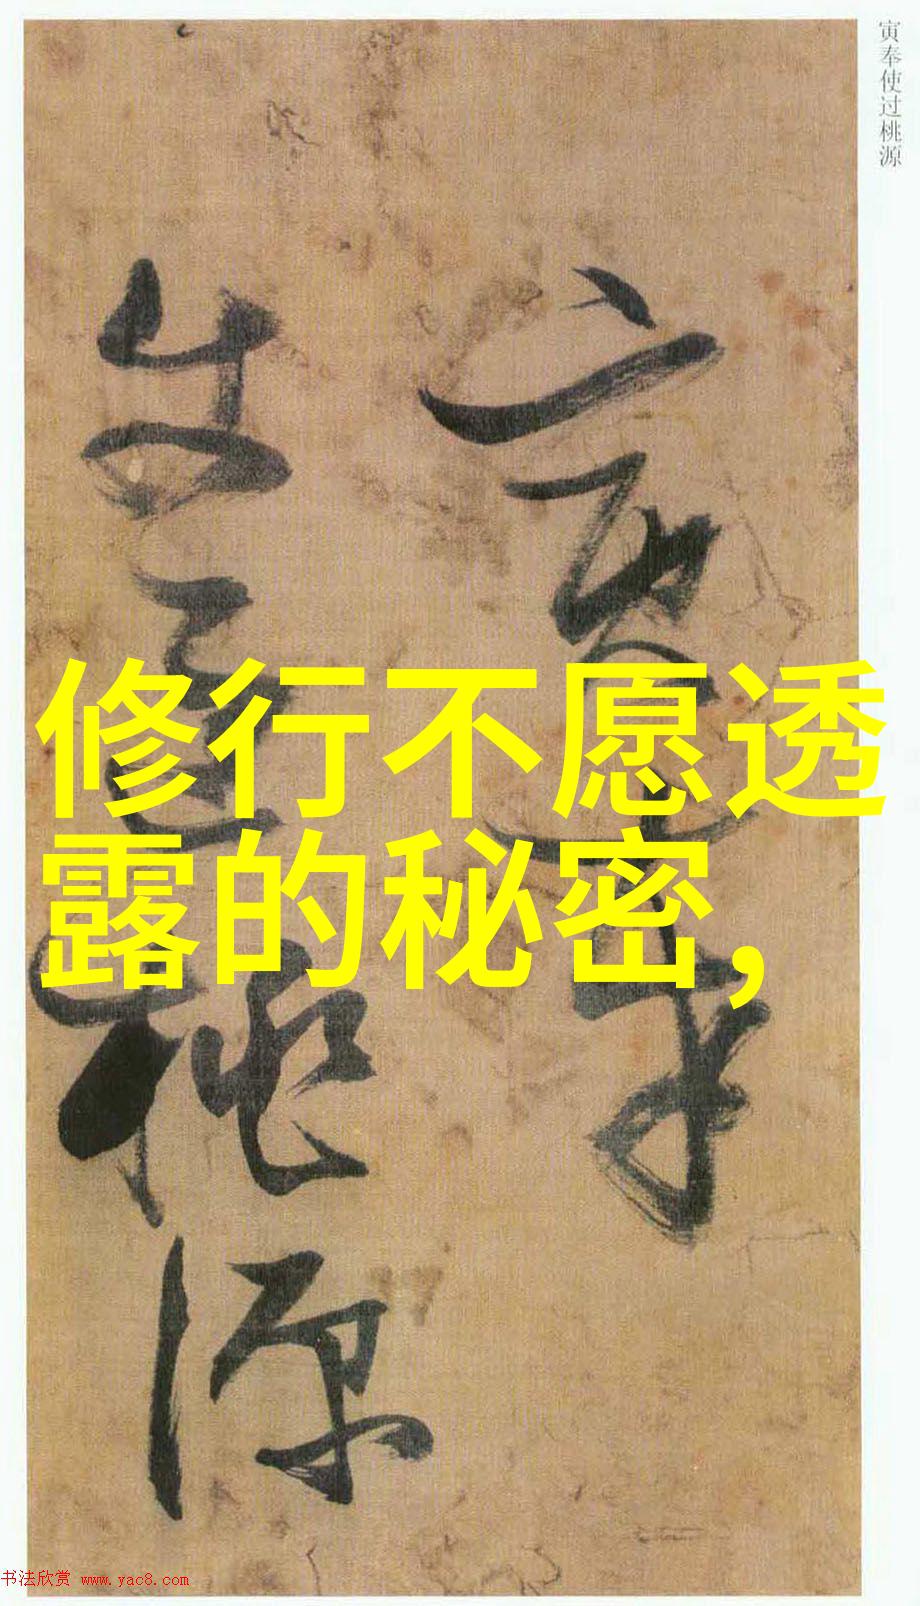 寅奉使过桃源
修行不愿透
露的秘密,
寅奉
使过桃源
书法欣赏 www.yac8.com